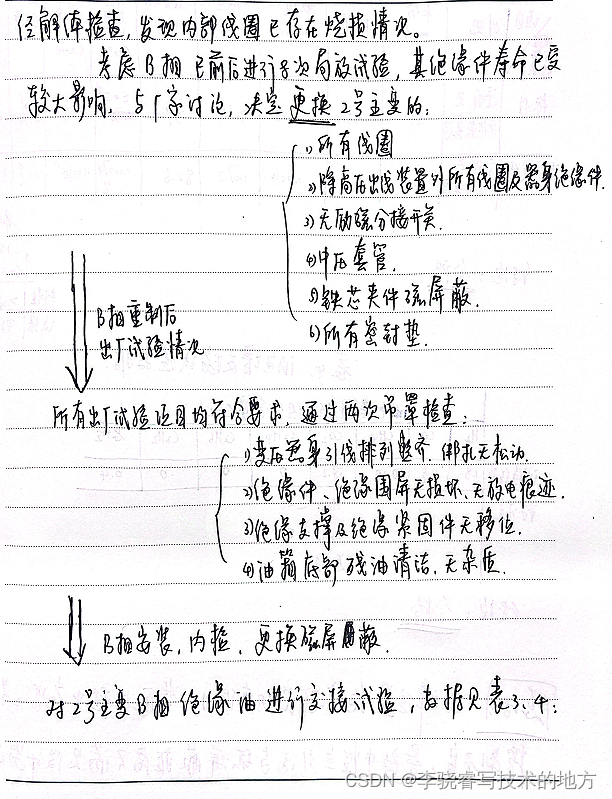 经解体检查，发现内部线圈已存在烧损情况。
考虑B相已前后进行8次局放试验，其绝缘件寿命已受
较大影响，与厂家讨论，决定更换2号主变的：
1)所有线圈
2)除高压出线装置外所有线圈及器身绝缘件.
3)无励磁分接开关.
4)中压套管.
5)铁芯夹件磁屏蔽.
6)所有密封垫.
B相重制后
出厂试验情况
所有出厂试验项目均符合要求，通过两次吊罩检查：
1)变压器身引线排列整齐，绑扎无松动.
2)绝缘件、绝缘围屏无损坏、无放电痕迹.
3)绝缘支撑及绝缘紧固件无移位.
4)油箱底部残油清洁，无杂质.
B相安装，内检，更换磁屏蔽.
对2号主变B相绝缘油进行交接试验，数据见表3、4：
CSDN @李骁睿写技术的地方